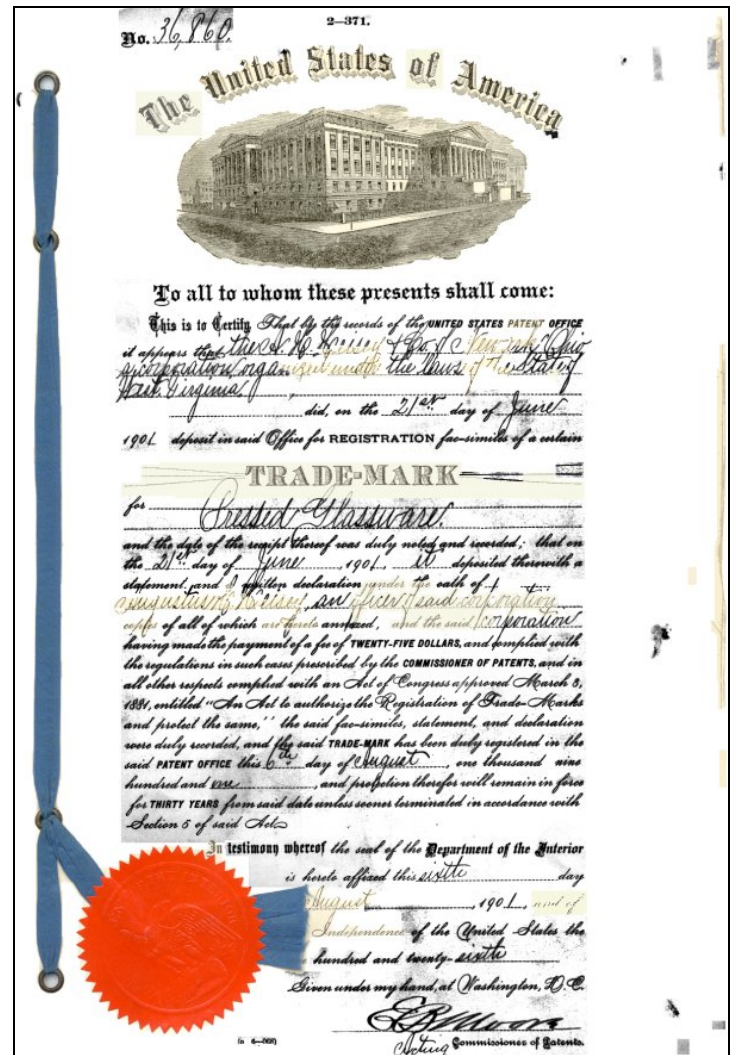 2—371.
No. 36,860.
The United States of America
To all to whom these presents shall come:
This is to Certify That by the records of the UNITED STATES PATENT OFFICE
it appears that the A. H. Heisey & Co. of Newark Ohio
a corporation organized under the laws of the State of
West Virginia
did, on the 21st day of June
1901 deposit in said Office for REGISTRATION fac-similes of a certain
TRADE-MARK
for Pressed Glassware.
and the date of the receipt thereof was duly noted and recorded; that on
the 21st day of June, 1901, it deposited therewith a
statement, and a written declaration under the oath of
Augustus H. Heisey, an officer of said corporation
copies of all of which are hereto annexed, and the said corporation
having made the payment of a fee of TWENTY-FIVE DOLLARS, and complied with
the regulations in such cases prescribed by the COMMISSIONER OF PATENTS, and in
all other respects complied with an Act of Congress approved March 3,
1881, entitled "An Act to authorize the Registration of Trade-Marks
and protect the same," the said fac-similes, statement, and declaration
were duly recorded, and the said TRADE-MARK has been duly registered in the
said PATENT OFFICE this 6th day of August, one thousand nine
hundred and one, and protection therefor will remain in force
for THIRTY YEARS from said date unless sooner terminated in accordance with
Section 5 of said Act.
In testimony whereof the seal of the Department of the Interior
is hereto affixed this sixth day
August, 1901, and of
Independence of the United States the
hundred and twenty-sixth
Given under my hand, at Washington, D. C.
E B Moore
Acting Commissioner of Patents.